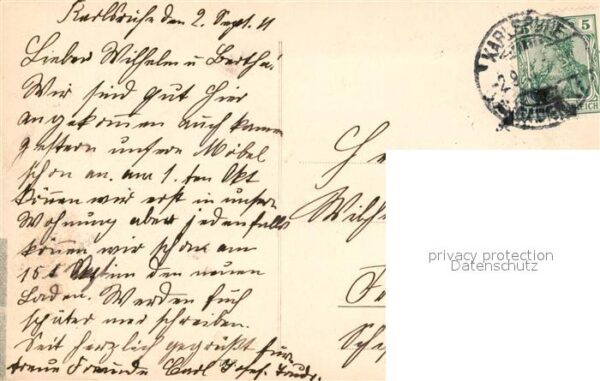 Karlsruhe den 2. Sept. 11
Lieber Wilhelm u Bertha!
Wir sind gut hier
angekommen auch kamen
gestern unsere Möbel
schon an. am 1. ten Okt
können wir erst in unsere
Wohnung aber jedenfalls
können wir schon am
15 t in den neuen
Laden. Werden Euch
später mer schreiben.
Seit herzlich gegrüßt
treue Freunde Carl
KARLSRUHE
5
REICH
Wilh
privacy protection
Datenschutz